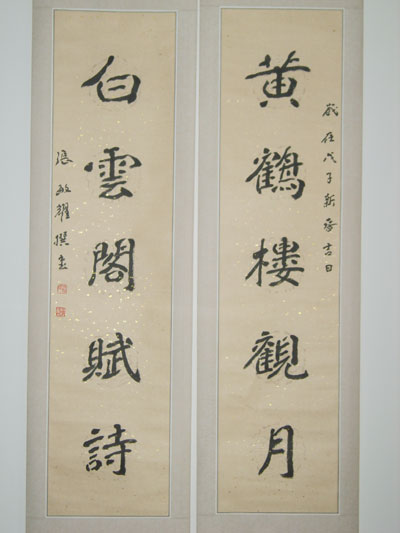 歲在戊子新春吉日
黄鶴樓觀月
白雲閣賦詩
張敏耀撰書